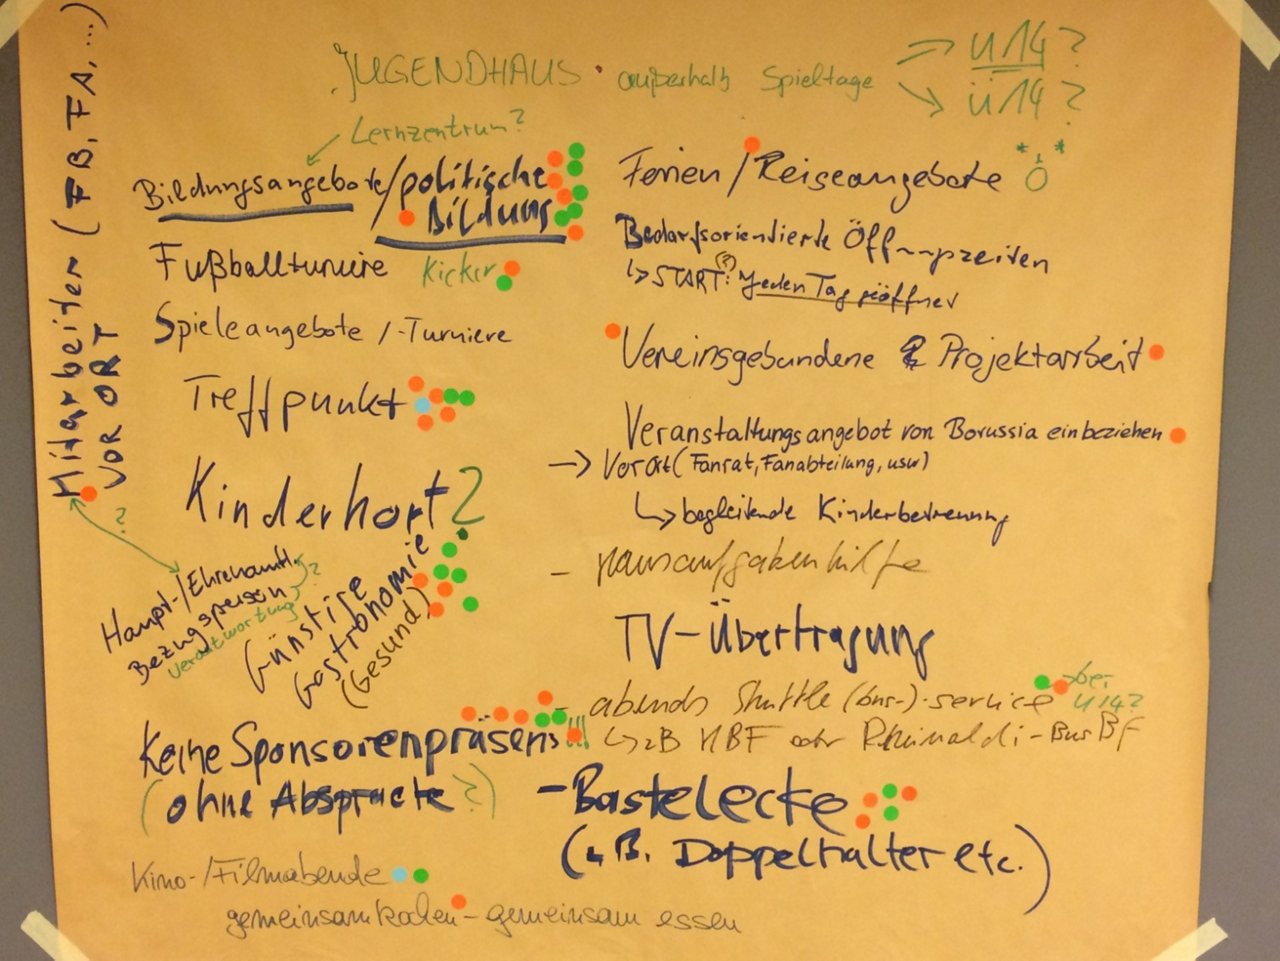 JUGENDHAUS • außerhalb Spieltage
U14?
Ü14?
Lernzentrum?
Bildungsangebote/politische
Bildung
Fußballturniere Kicker
Spieleangebote /-Turniere
Treffpunkt
Kinderhort?
Mitarbeiter (FB, FA, ...)
VOR ORT
?
Haupt-/Ehrenamtl.
Bezugsperson ?
Verantwortung
Günstige
Gastronomie
(Gesund)
Keine Sponsorenpräsens!!!
(ohne Absprache?)
Kino-/Filmabende
gemeinsam kochen - gemeinsam essen
Ferien/Reiseangebote
Bedarfsorientierte Öffnungszeiten
START(?): Jeden Tag geöffnet
Vereinsgebundene & Projektarbeit
Veranstaltungsangebot von Borussia einbeziehen
Vorort (Fanrat, Fanabteilung, usw)
begleitende Kinderbetreuung
- Hausaufgabenhilfe
TV-Übertragung
- abends Shuttle (bus-)-service
bei U14?
zB HBF oder Rheindahlen-Bus BF
- Bastelecke
(z.B. Doppelhalter etc.)